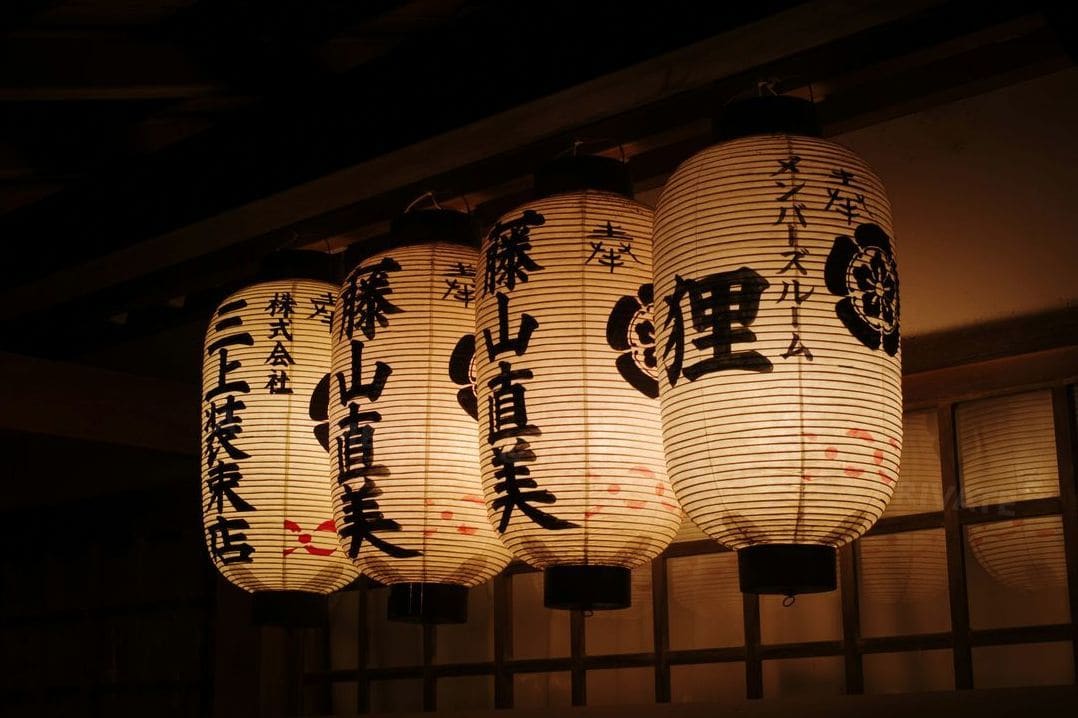 奉
メンバーズルーム
狸
奉
藤山直美
奉
藤山直美
奉
株式会社
三上装束店